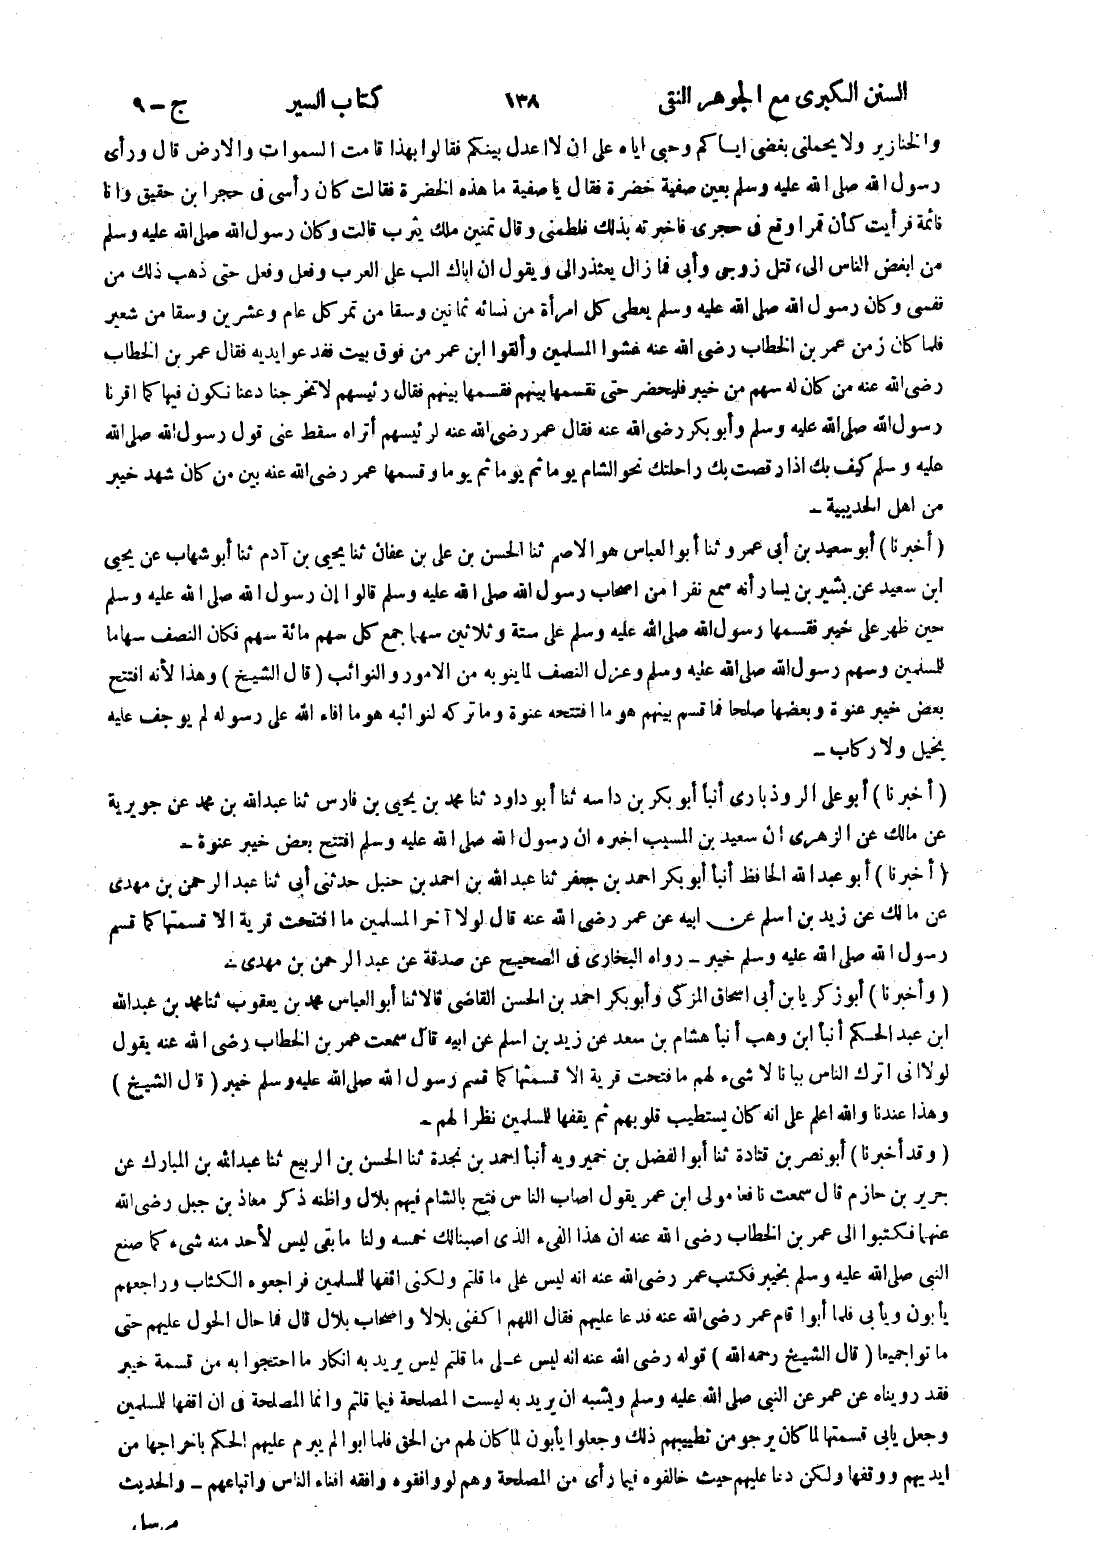 السنن الكبرى مع الجوهر النقى ١٣٨ كتاب السير ج-٩
والخنازير ولا يحملنى بغضى اياكم وحبى اياه على ان لا اعدل بينكم فقالوا بهذا قامت السموات والارض قال ورأى
رسول الله صلى الله عليه وسلم بعين صفية خضرة فقال يا صفية ما هذه الخضرة فقالت كان رأسى فى حجر ابن حقيق وانا
نائمة فرأيت كأن قمرا وقع فى حجرى فاخبرته بذلك فلطمنى وقال تمنين ملك يثرب قالت وكان رسول الله صلى الله عليه وسلم
من ابغض الناس الى، قتل زوجى وأبى فما زال يعتذر الى ويقول ان اباك الب على العرب وفعل وفعل حتى ذهب ذلك من
نفسى وكان رسول الله صلى الله عليه وسلم يعطى كل امرأة من نسائه ثمانين وسقا من تمر كل عام وعشرين وسقا من شعير
فلما كان زمن عمر بن الخطاب رضى الله عنه غشوا المسلمين وألقوا ابن عمر من فوق بيت ففدعوا يديه فقال عمر بن الخطاب
رضى الله عنه من كان له سهم من خيبر فليحضر حتى نقسمها بينهم فقسمها بينهم فقال رئيسهم لا تخرجنا دعنا نكون فيها كما اقرنا
رسول الله صلى الله عليه وسلم وأبو بكر رضى الله عنه فقال عمر رضى الله عنه لرئيسهم أتراه سقط عنى قول رسول الله صلى الله
عليه وسلم كيف بك اذا رقصت بك راحلتك نحو الشام يوما ثم يوما ثم يوما وقسمها عمر رضى الله عنه بين من كان شهد خيبر
من اهل الحديبية -
(أخبرنا) أبو سعيد بن أبى عمرو ثنا أبو العباس هو الاصم ثنا الحسن بن على بن عفان ثنا يحيى بن آدم ثنا أبو شهاب عن يحيى
ابن سعيد عن بشير بن يسار أنه سمع نفرا من اصحاب رسول الله صلى الله عليه وسلم قالوا إن رسول الله صلى الله عليه وسلم
حين ظهر على خيبر فقسمها رسول الله صلى الله عليه وسلم على ستة وثلاثين سهما جمع كل سهم مائة سهم فكان النصف سهاما
للمسلمين وسهم رسول الله صلى الله عليه وسلم وعزل النصف لما ينوبه من الامور والنوائب (قال الشيخ) وهذا لأنه افتتح
بعض خيبر عنوة وبعضها صلحا فما قسم بينهم هو ما افتتحه عنوة وما تركه لنوائبه هو ما افاء الله على رسوله لم يوجف عليه
بخيل ولا ركاب -
(أخبرنا) أبو على الروذبارى أنبأ أبو بكر بن داسه ثنا أبو داود ثنا محمد بن يحيى بن فارس ثنا عبد الله بن محمد عن جويرية
عن مالك عن الزهرى ان سعيد بن المسيب اخبره ان رسول الله صلى الله عليه وسلم افتتح بعض خيبر عنوة -
(أخبرنا) أبو عبد الله الحافظ أنبأ أبو بكر احمد بن جعفر ثنا عبد الله بن احمد بن حنبل حدثنى أبى ثنا عبد الرحمن بن مهدى
عن مالك عن زيد بن اسلم عن ابيه عن عمر رضى الله عنه قال لولا آخر المسلمين ما افتتحت قرية الا قسمتها كما قسم
رسول الله صلى الله عليه وسلم خيبر - رواه البخارى فى الصحيح عن صدقة عن عبد الرحمن بن مهدى -
(وأخبرنا) أبو زكريا بن أبى اسحاق المزكى وأبو بكر احمد بن الحسن القاضى قالا ثنا أبو العباس محمد بن يعقوب ثنا محمد بن عبد الله
ابن عبد الحكم أنبأ ابن وهب أنبأ هشام بن سعد عن زيد بن اسلم عن ابيه قال سمعت عمر بن الخطاب رضى الله عنه يقول
لولا انى اترك الناس ببانا لا شىء لهم ما فتحت قرية الا قسمتها كما قسم رسول الله صلى الله عليه وسلم خيبر (قال الشيخ)
وهذا عندنا والله اعلم على انه كان يستطيب قلوبهم ثم يقفها للمسلمين نظرا لهم -
(وقد أخبرنا) أبو نصر بن قتادة ثنا أبو الفضل بن خميرويه أنبأ احمد بن نجدة ثنا الحسن بن الربيع ثنا عبد الله بن المبارك عن
جرير بن حازم قال سمعت نافعا مولى ابن عمر يقول اصاب الناس فتح بالشام فيهم بلال واظنه ذكر معاذ بن جبل رضى الله
عنهما فكتبوا الى عمر بن الخطاب رضى الله عنه ان هذا الفىء الذى اصبنا لك خمسه ولنا ما بقى ليس لأحد منه شىء كما صنع
النبى صلى الله عليه وسلم بخيبر فكتب عمر رضى الله عنه انه ليس على ما قلتم ولكنى اقفها للمسلمين فراجعوه الكتاب وراجعهم
يأبون ويأبى فلما أبوا قام عمر رضى الله عنه فدعا عليهم فقال اللهم اكفنى بلالا واصحاب بلال قال فما حال الحول عليهم حتى
ماتوا جميعا (قال الشيخ رحمه الله) قوله رضى الله عنه انه ليس على ما قلتم ليس يريد به انكار ما احتجوا به من قسمة خيبر
فقد رويناه عن عمر عن النبى صلى الله عليه وسلم ويشبه ان يريد به ليست المصلحة فيما قلتم وانما المصلحة فى ان اقفها للمسلمين
وجعل يأبى قسمتها لما كان يرجو من تطييبهم ذلك وجعلوا يأبون لما كان لهم من الحق فلما ابوا لم يبرم عليهم الحكم باخراجها من
ايديهم ووقفها ولكن دعا عليهم حيث خالفوه فيما رأى من المصلحة وهم لو وافقوه وافقه افناء الناس واتباعهم - والحديث
مرسل